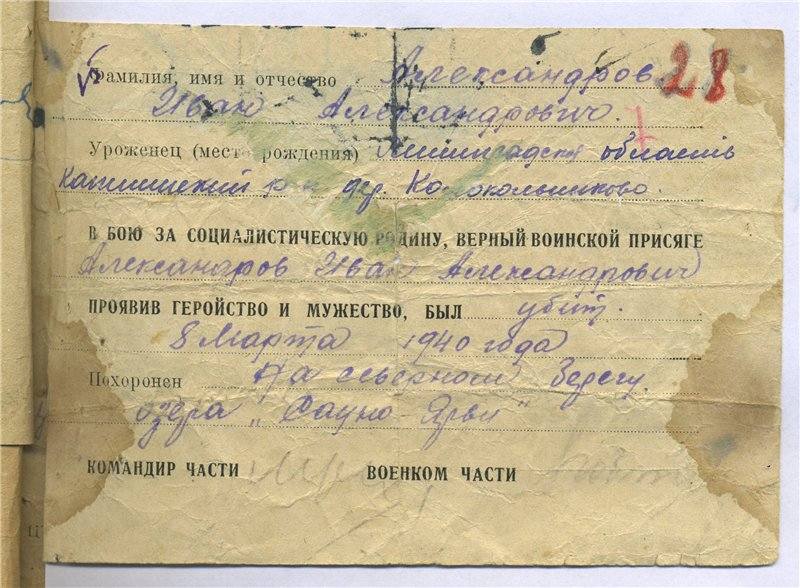 28
Фамилия, имя и отчество Александров
Иван Александрович.
Уроженец (место рождения) Ленинградская область
р-н дер. Колокольниково.
В БОЮ ЗА СОЦИАЛИСТИЧЕСКУЮ РОДИНУ, ВЕРНЫЙ ВОИНСКОЙ ПРИСЯГЕ
Александров Иван Александрович
ПРОЯВИВ ГЕРОЙСТВО И МУЖЕСТВО, БЫЛ убит.
8 Марта 1940 года
Похоронен На северном берегу
озера „Сауно-Ярви"
КОМАНДИР ЧАСТИ ВОЕНКОМ ЧАСТИ